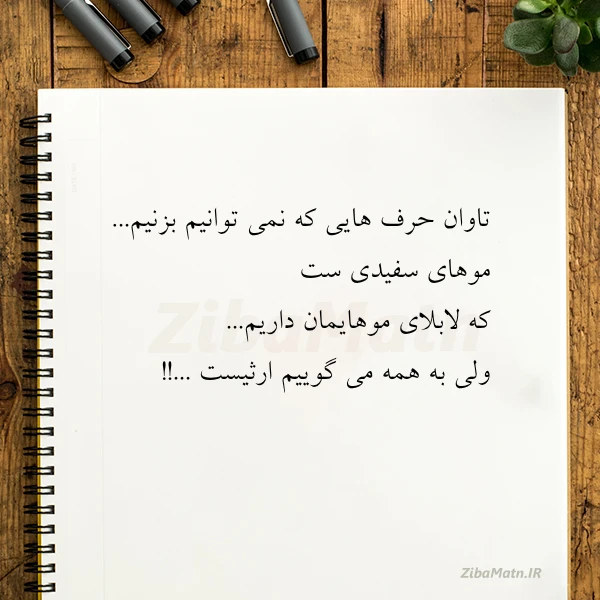 تاوان حرف هایی که نمی توانیم بزنیم...
موهای سفیدی ست
که لابلای موهایمان داریم...
ولی به همه می گوییم ارثیست ...!!
ZibaMatn
ZibaMatn.IR